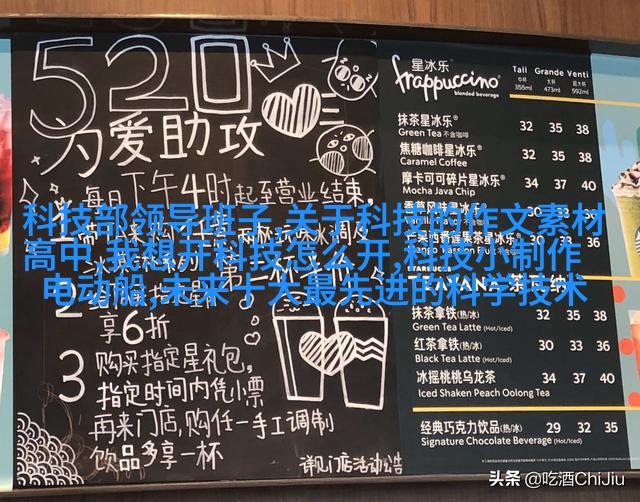 520
为爱助攻
每日下午4时起至营业结束,
享6折
3 购买指定星礼包,
指定时间内凭小票
再来门店,购任一手工调制
饮品多享一杯
详见门店活动公告
星冰乐®
frappuccino®
blended beverage
Tall Grande Venti
中杯 大杯 超大杯
355ml 473ml 592ml
抹茶星冰乐® 32 35 38
Green Tea 不含咖啡
焦糖咖啡星冰乐® 32 35 38
Caramel Coffee
摩卡可可碎片星冰乐® 34 37 40
Mocha Java Chip
科技部领导班子,关于科技的作文素材
高中,我想开科技怎么开,科技小制作
电动船,未来十大最先进的科学技术
抹茶拿铁(热/冰) 32 35 38
Green Tea Latte (Hot/Iced)
红茶拿铁(热/冰) 30 33 36
Black Tea Latte (Hot/Iced)
冰摇桃桃乌龙茶 34 37 40
Iced Shaken Peach Oolong Tea
经典巧克力饮品(热/冰) 29 32 35
Signature Chocolate Beverage (Hot/Iced)
头条 @吃酒ChiJiu